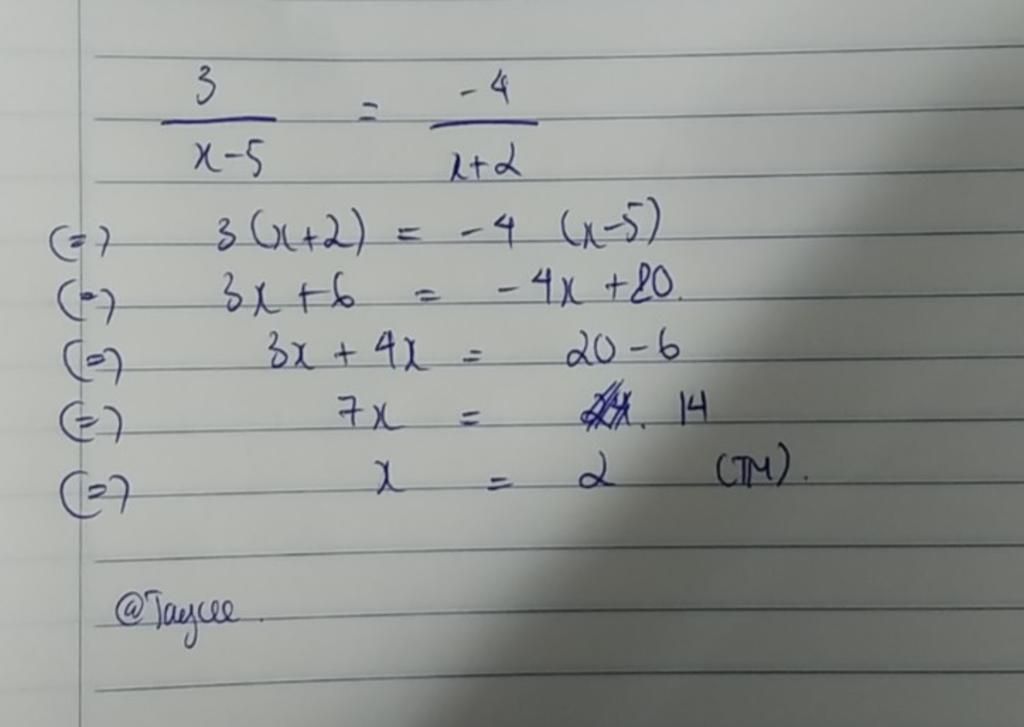 3/(x-5) = -4/(x+2)
(=) 3(x+2) = -4 (x-5)
(=) 3x+6 = -4x+20.
(=) 3x+4x = 20-6
(=) 7x = 14
(=) x = 2 (TM).
@Taycee.